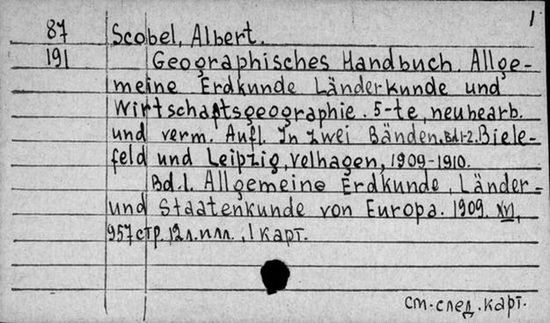 1
87 Scobel, Albert.
191 Geographisches Handbuch. Allge-
meine Erdkunde Länderkunde und
Wirtschaftsgeographie. 5-te, neubearb.
und verm. Aufl. In zwei Bänden. Bd 1-2. Biele-
feld und Leipzig, Velhagen, 1909-1910.
Bd. 1. Allgemeine Erdkunde, Länder-
und Staatenkunde von Europa. 1909. XVI,
957 стр. 12 л. илл., 1 карт.
см. след. карт.